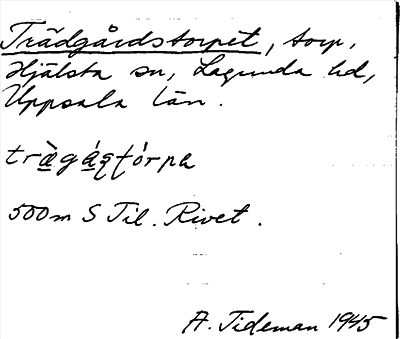 Trädgårdstorpet, torp,
Hjälsta sn, Lagunda hd,
Uppsala län.
500 m S Til. Rivet.
A. Tideman 1945